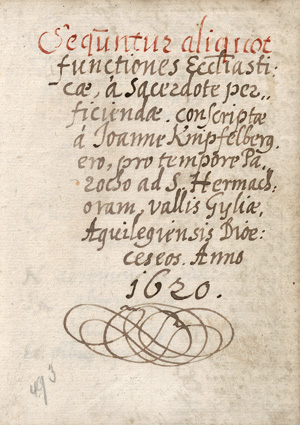 Sequntur aliquot
functiones Eccl̄iasti-
cæ, á Sacerdote per„
ficiendæ. conscriptæ
á Joanne Knipfelberg.
ero, pro tempore Pa„
rocho ad S. Hermach„
oram, vallis Gyliæ,
Aquilegiensis Dioe:
ceseos. Anno
1620.
493